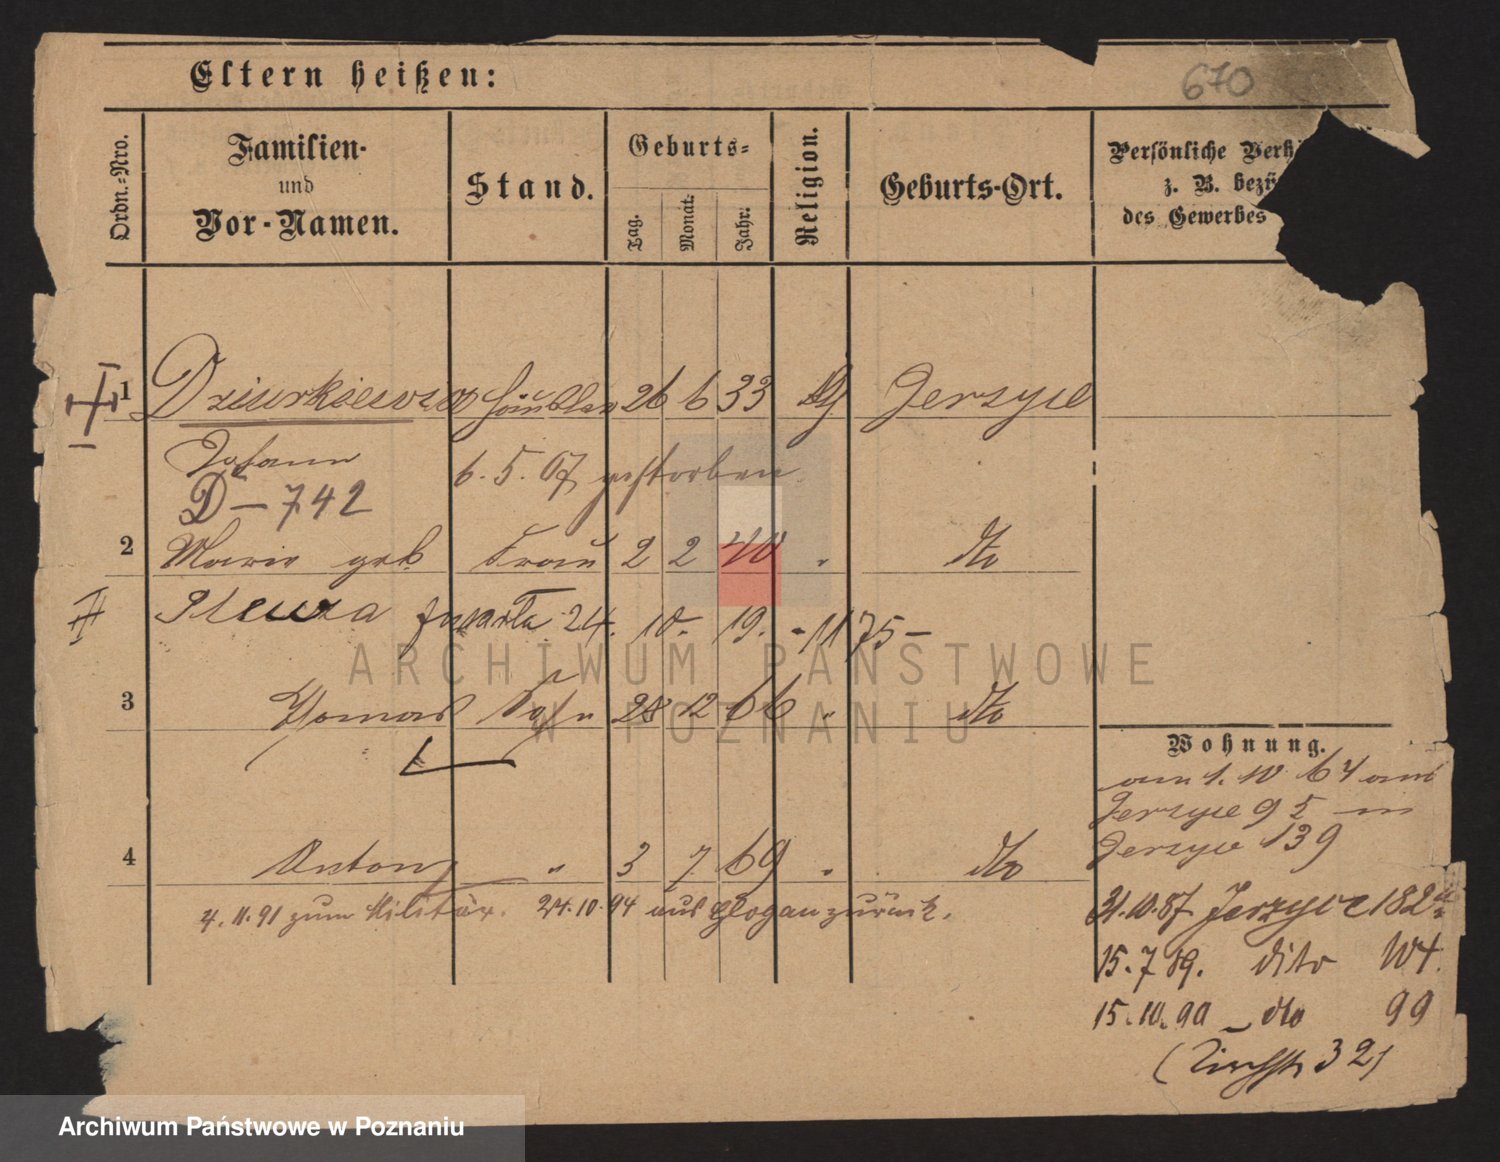 670
Eltern heißen:
Ordn.-Nro.
Familien-
und
Vor-Namen.
Stand.
Geburts-
Tag.
Monat.
Jahr.
Religion.
Geburts-Ort.
Persönliche
z. B.
des Gewerbes
1 Dziurkiewicz Häusler 26 6 33 Jerzyce
Johann 6. 5. 07 gestorben
D-742
2 Marie geb. Frau 2 2 40 " dto
24. 10. 19. 1175-
3 Thomas Sohn 28 12 66 " dto
4 Anton " 3 7 69 " dto
4. 11. 91 zum Militär. 24.10.94 aus Glogau zurück.
Wohnung.
am 1. 10 64 aus
Jerzyce 95 in
Jerzyce 139
31.10.87 Jerzyce 182
15.7.89. dito 104.
15.10.90 - dto 99
32)
ARCHIWUM PAŃSTWOWE
W POZNANIU
Archiwum Państwowe w Poznaniu